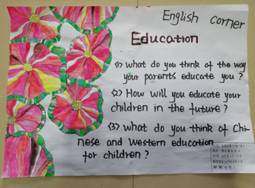 English corner
Education
(1) What do you think of the way
your parents educate you?
(2) How will you educate your
children in the future?
(3) What do you think of Chi-
nese and Western education
for children?